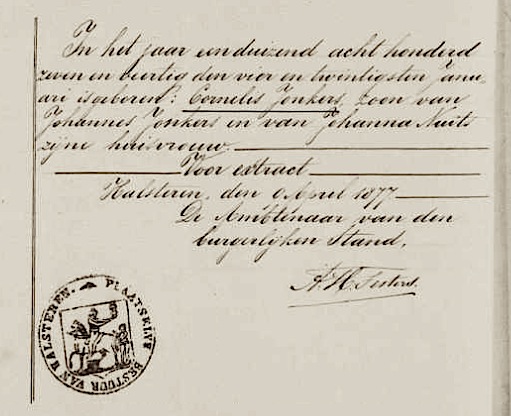 In het jaar eenduizend acht honderd
zeven en veertig den vier en twintigsten Janu-
ari is geboren: Cornelis Jonkers, zoon van
Johannes Jonkers en van Johanna Nuits
zijne huisvrouw.
Voor extract
Halsteren, den 9 April 1877
De Ambtenaar van den
burgerlijken Stand,
A H
PLAATSELYK BESTUUR VAN HALSTEREN.